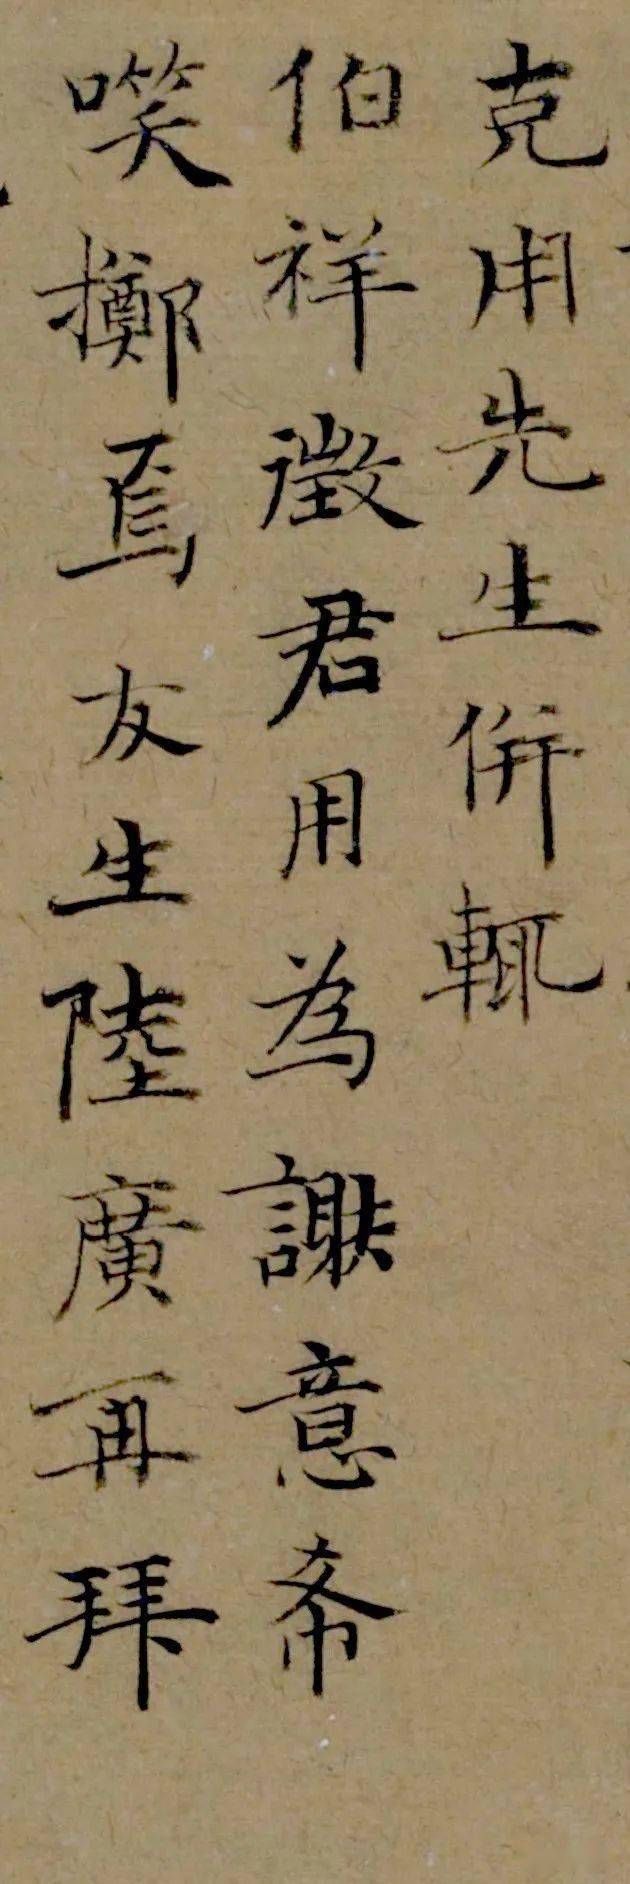 克用先生併輒
伯祥徵君用為謝意希
噗擲焉友生陸廣再拜